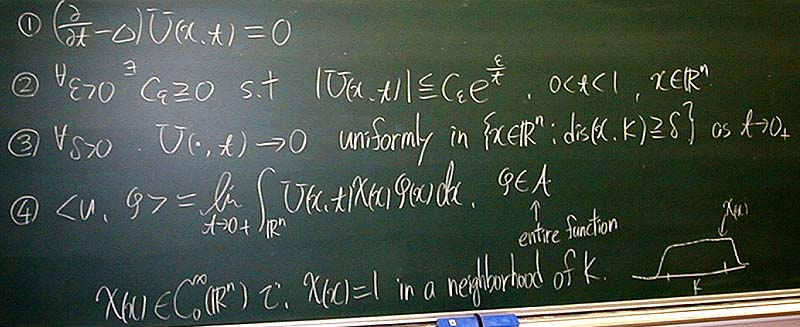 ① (∂/∂t − Δ)U(x,t) = 0
② ∀ε>0 ∃Cε≧0 s.t |U(x,t)| ≦ Cε e^{ε/t}, 0<t<1, x∈ℝⁿ
③ ∀δ>0. U(·,t)→0 uniformly in {x∈ℝⁿ; dis(x,K)≧δ} as t→0₊
④ <u, φ> = lim_{t→0+} ∫_{ℝⁿ} U(x,t)χ(x)φ(x)dx. φ∈A
↑
entire function
χ(x)
χ(x)∈C₀^∞(ℝⁿ) で χ(x)=1 in a neighborhood of K.
K